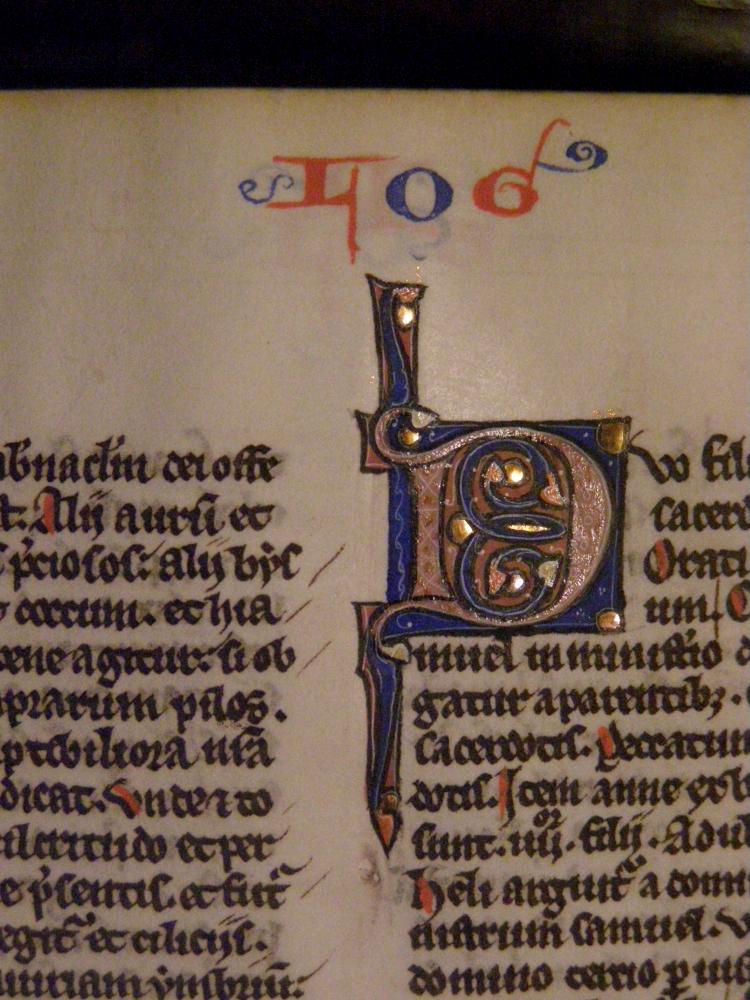 LOG
abnaclm dei offe
t. Alij aurū et
p̄ciosos: alij bys
coccum. et hia
bene agitur: si ob
prarum pilos.
ptibiliora nr̄a
dicat. Vnde ⁊ to
cilcritudo et per
e p̄sentis. et fut᷑
egit᷑ et cilicijs.
iuriam ymbriū:
DVo filii
sacer
Orati
um.
muel in minist̄io d
gatur a parentibꝫ.
sacerdotis. Peccatum
dotis. Item anne ex b
sunt. iiij. filij. Adul
Heli arguit᷑ a domi
nistrum samuel. V
domino